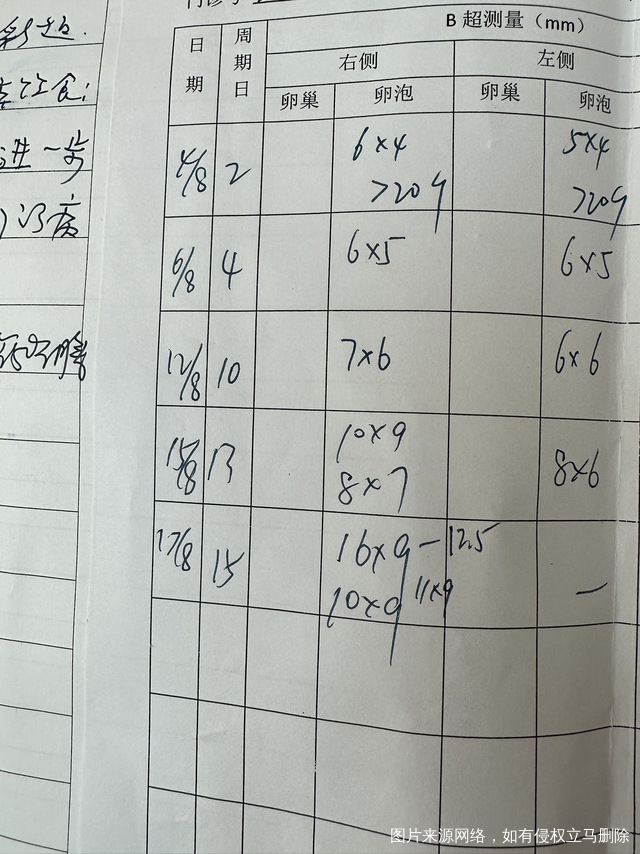 B 超测量（mm）
日期 周期日 右侧 左侧
卵巢 卵泡 卵巢 卵泡
4/8 2 6×4 5×4
>20个 >20个
6/8 4 6×5 6×5
12/8 10 7×6 6×6
15/8 13 10×9 8×6
8×7
17/8 15 16×9-12.5
10×9 11×9 —
进一步
图片来源网络，如有侵权立马删除